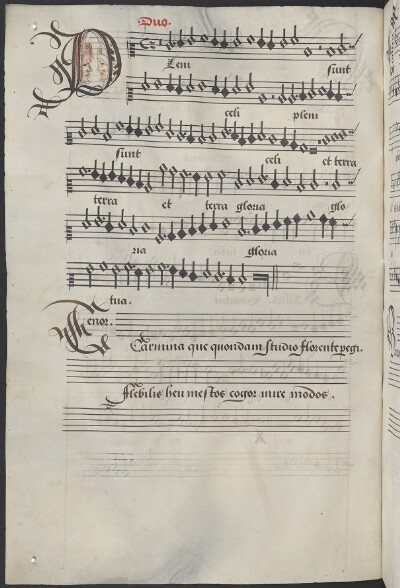 Duo.
Plem sunt
celi plem
sunt celi et terra
terra et terra gloria glo
ria gloria
tua.
Tenor.
Carmina que quondam studio florente pegi.
Flebilis heu mestos cogor inire modos.